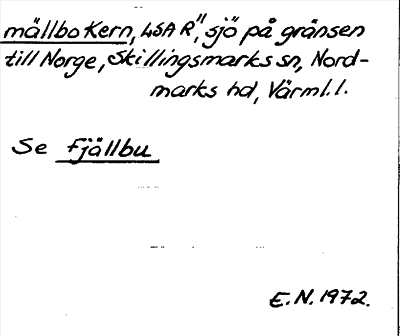 mällbo Kern, "LSA R", sjö på gränsen
till Norge, Skillingsmarks sn, Nord-
marks hd, Värml.l.
Se Fjällbu
E.N. 1972.